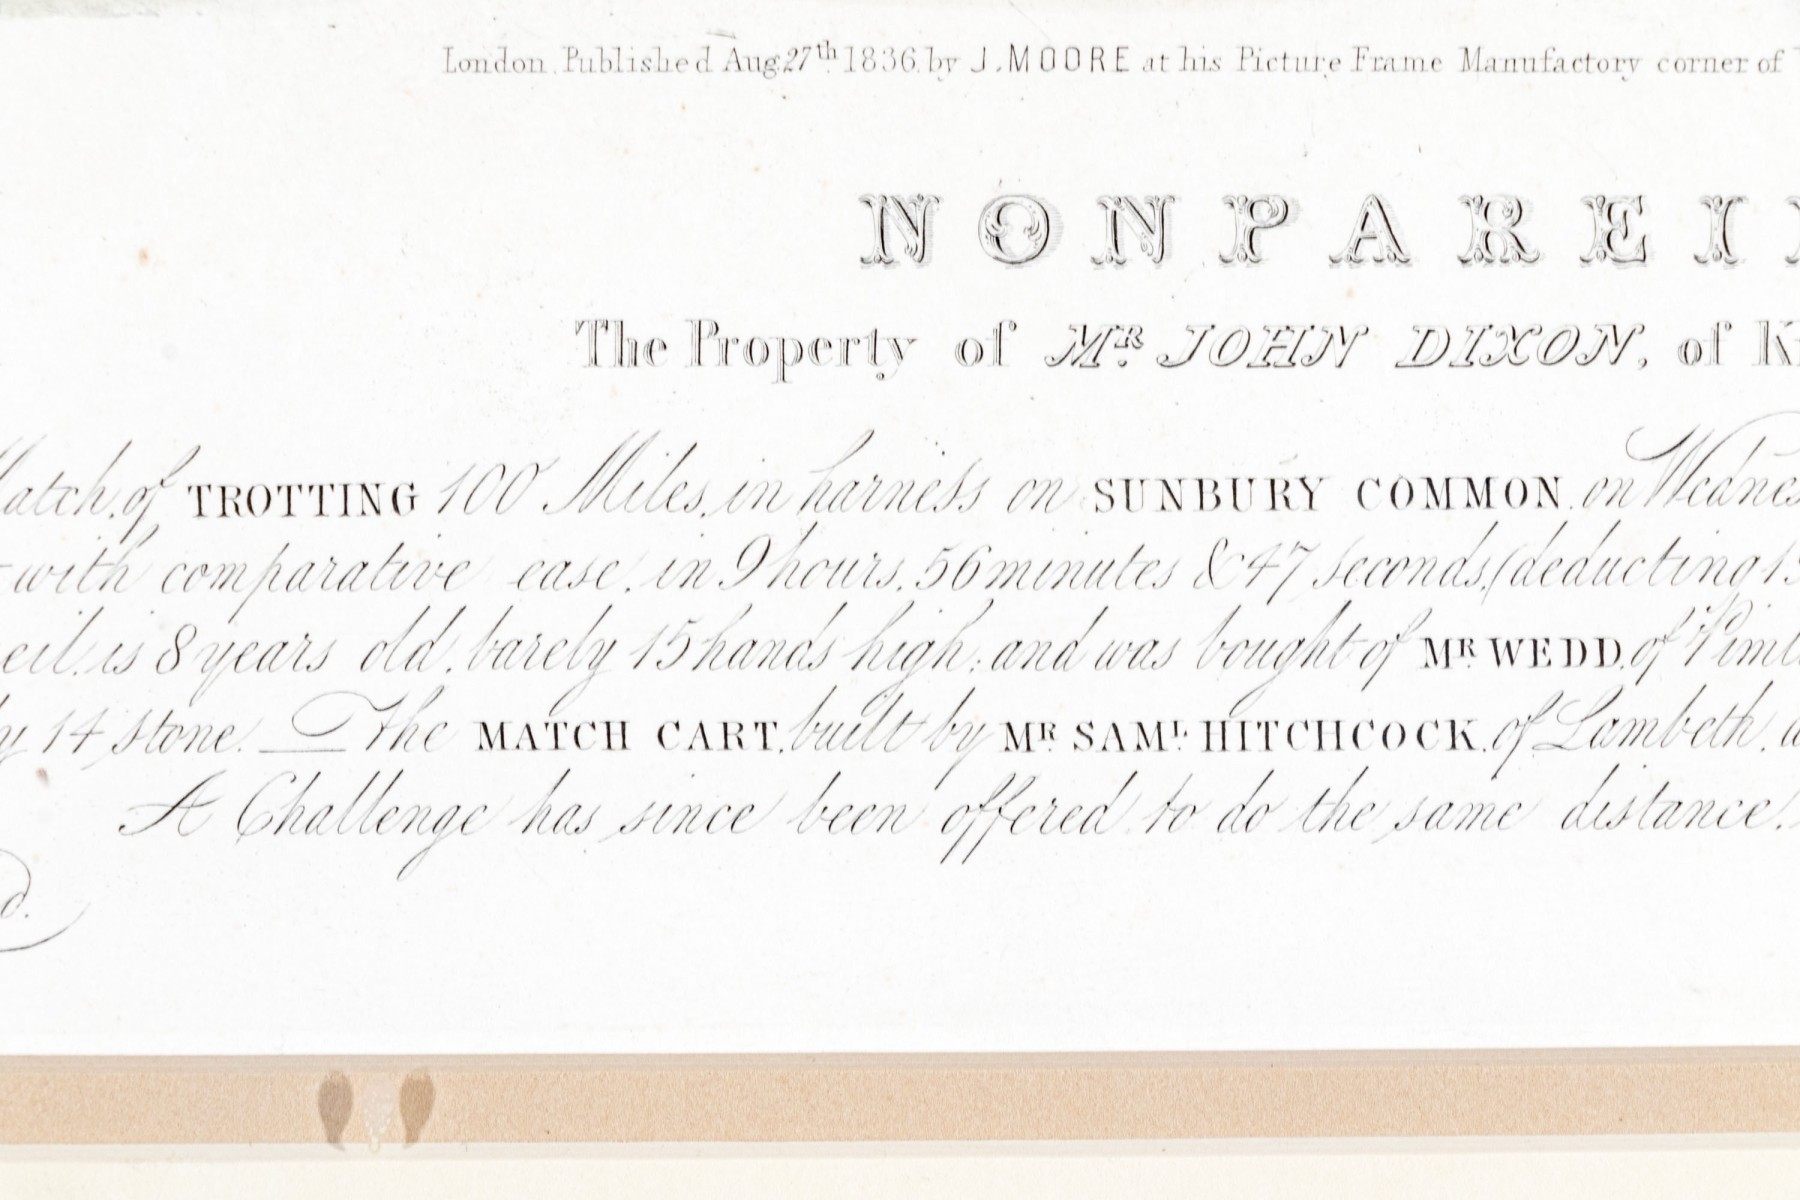 London. Published Aug. 27th. 1836. by J. MOORE at his Picture Frame Manufactory corner of
NONPAREI
The Property of MR. JOHN DIXON, of K
atch, of TROTTING 100 Miles, in harness on SUNBURY COMMON, on Wednes
with comparative ease, in 9 hours, 56 minutes & 47 seconds, (deducting 1
eil, is 8 years old, barely 15 hands high; and was bought of MR WEDD, of Piml
y 14 stone. — The MATCH CART, built by MR SAML. HITCHCOCK, of Lambeth,
A Challenge has since been offered to do the same distance,
d.